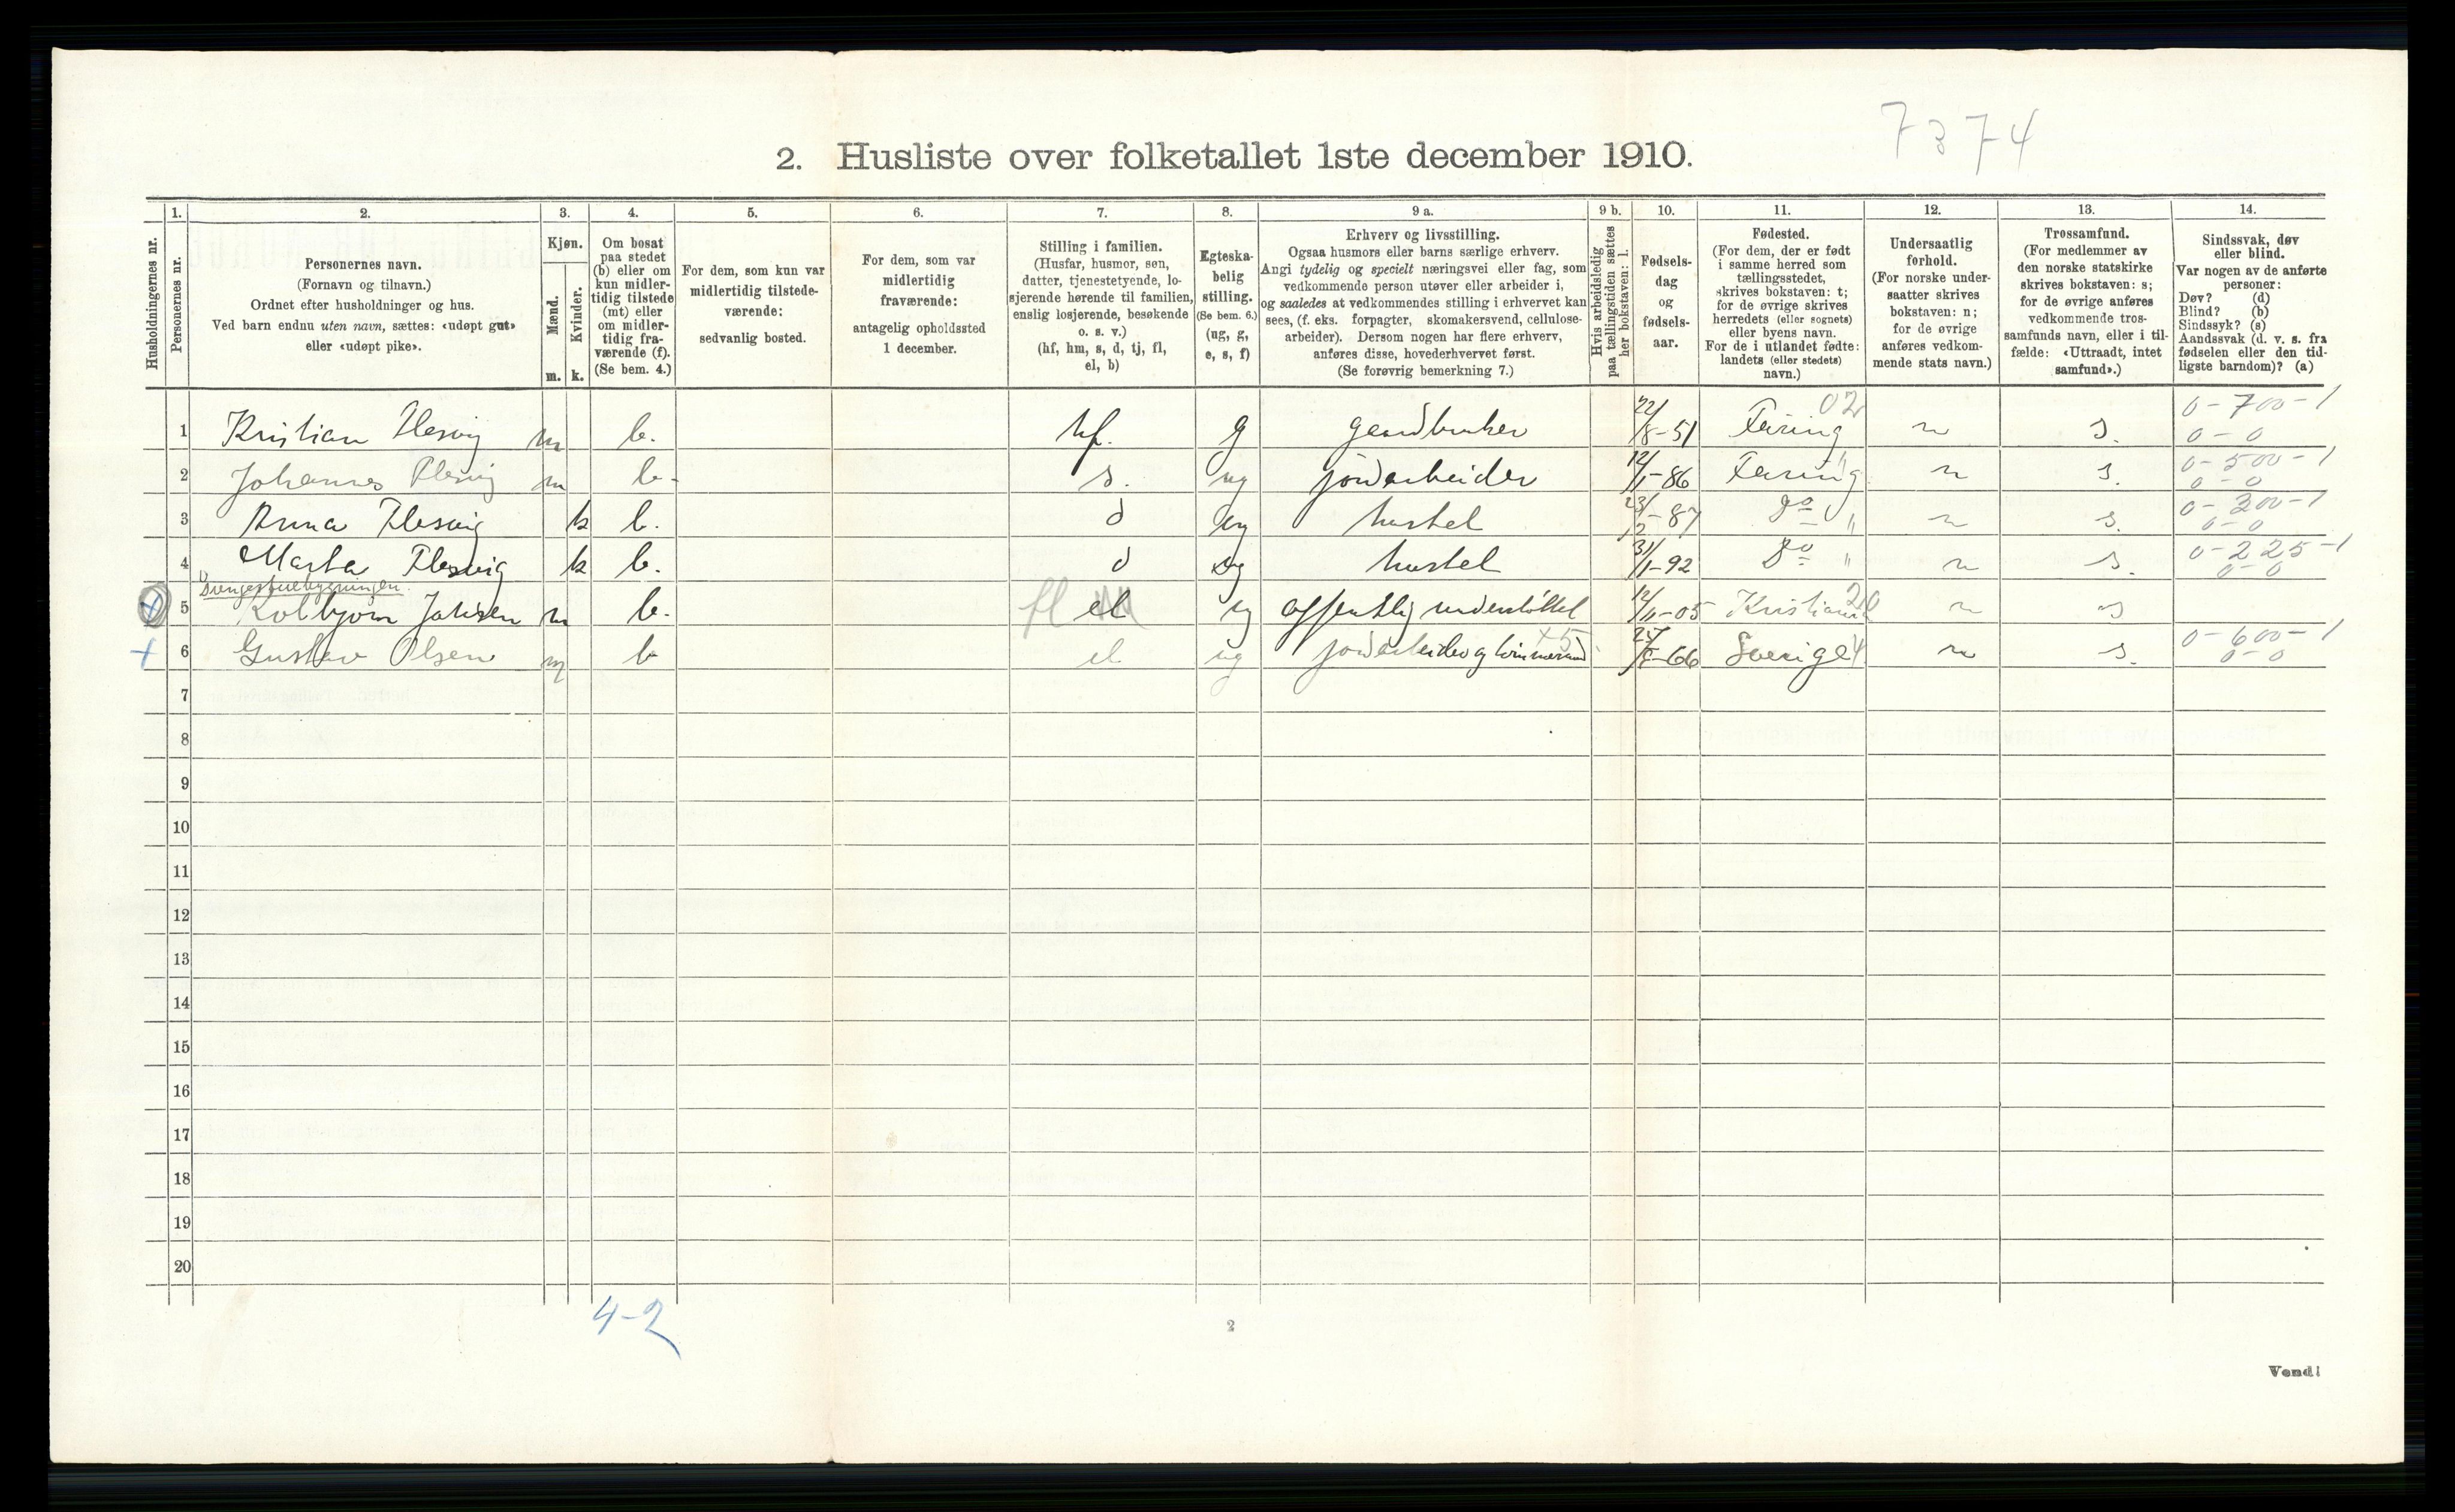 7374
2. Husliste over folketallet 1ste december 1910.
Husholdningernes nr.
1. Personernes nr.
2. Personernes navn.
(Fornavn og tilnavn.)
Ordnet efter husholdninger og hus.
Ved barn endnu uten navn, sættes: «udøpt gut»
eller «udøpt pike».
3. Kjøn.
Mænd. Kvinder.
m. k.
4. Om bosat
paa stedet
(b) eller om
kun midler-
tidig tilstede
(mt) eller
om midler-
tidig fra-
værende (f).
(Se bem. 4.)
5. For dem, som kun var
midlertidig tilstede-
værende:
sedvanlig bosted.
6. For dem, som var
midlertidig
fraværende:
antagelig opholdssted
1 december.
7. Stilling i familien.
(Husfar, husmor, søn,
datter, tjenestetyende, lo-
sjerende hørende til familien,
enslig losjerende, besøkende
o. s. v.)
(hf, hm, s, d, tj, fl,
el, b)
8. Egteska-
belig
stilling.
(Se bem. 6.)
(ug, g,
e, s, f)
9 a. Erhverv og livsstilling.
Ogsaa husmors eller barns særlige erhverv.
Angi tydelig og specielt næringsvei eller fag, som
vedkommende person utøver eller arbeider i,
og saaledes at vedkommendes stilling i erhvervet kan
sees, (f. eks. forpagter, skomakersvend, cellulose-
arbeider). Dersom nogen har flere erhverv,
anføres disse, hovederhvervet først.
(Se forøvrig bemerkning 7.)
9 b. Hvis arbeidsledig
paa tællingstiden sættes
her bokstaven: l.
10. Fødsels-
dag
og
fødsels-
aar.
11. Fødested.
(For dem, der er født
i samme herred som
tællingsstedet,
skrives bokstaven: t;
for de øvrige skrives
herredets (eller sognets)
eller byens navn.
For de i utlandet fødte:
landets (eller stedets)
navn.)
12. Undersaatlig
forhold.
(For norske under-
saatter skrives
bokstaven: n;
for de øvrige
anføres vedkom-
mende stats navn.)
13. Trossamfund.
(For medlemmer av
den norske statskirke
skrives bokstaven: s;
for de øvrige anføres
vedkommende tros-
samfunds navn, eller i til-
fælde: «Uttraadt, intet
samfund».)
14. Sindssvak, døv
eller blind.
Var nogen av de anførte
personer:
Døv? (d)
Blind? (b)
Sindssyk? (s)
Aandssvak (d. v. s. fra
fødselen eller den tid-
ligste barndom)? (a)
1 Kristian Flesvig m b. hf. g gaardbruker 22/8-51 02 n s. 0-700-1 0-0
2 Johannes Flesvig m b. s. ug jordarbeider 12/1-86 " n s. 0-500-1 0-0
3 Anna Flesvig k b. d ug hustel 23/12-87 do " n s. 0-300-1 0-0
4 Marta Flesvig k b. d ug hustel 31/1-92 do " n s. 0-225-1 0-0
Drengestuebygningen.
5 Kolbjörn Jahsen m b. fl el ug offentlig understöttet 12/11-05 Kristiania 20 n s
6 Gustav Olsen m b el ug jordarbeider og tömmermand +5 25/8-66 Sverige n s. 0-600-1 0-0
7
8
9
10
11
12
13
14
15
16
17
18
19
20
4-2
2
Vend!